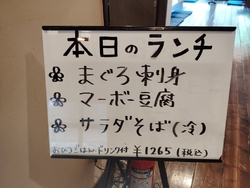 本日のランチ
まぐろ刺身
マーボー豆腐
サラダそば(冷)
おひつごはん・ドリンク付 ¥1265(税込)